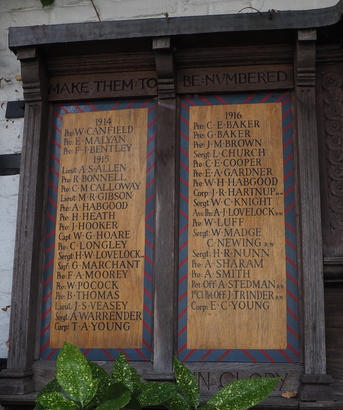 MAKE THEM TO BE NUMBERED
1914
Pte W·CANFIELD
Pte E·MALYAN
Pte F·J·BENTLEY
1915
Lieut A·S·ALLEN
Pte R·BONNELL
Pte C·M·CALLOWAY
Lieut M·R·GIBSON
Pte A·HABGOOD
Pte H·HEATH
Pte J·HOOKER
Capt W·G·HOARE
Pte C·LONGLEY
Sergt H·W·LOVELOCK
G·MARCHANT
Pte F·A·MOOREY
Pte W·POCOCK
Pte B·THOMAS
Lieut J·S·VEASEY
Sergt A·WARRENDER
Corpl T·A·YOUNG
1916
Pte C·E·BAKER
Pte G·BAKER
Pte J·M·BROWN
Sergt L·CHURCH
Pte C·E·COOPER
Pte E·A·GARDNER
Pte W·H·HABGOOD
Corpl J·R·HARTNUP
Sergt W·C·KNIGHT
A·J·LOVELOCK
Pte W·LUFF
Sergt W·MADGE
C·NEWING
Sergt H·R·NUNN
Pte A·SHARAM
Pte A·SMITH
Pet Off A·STEDMAN
J·TRINDER
Corpl E·C·YOUNG
IN GLORY